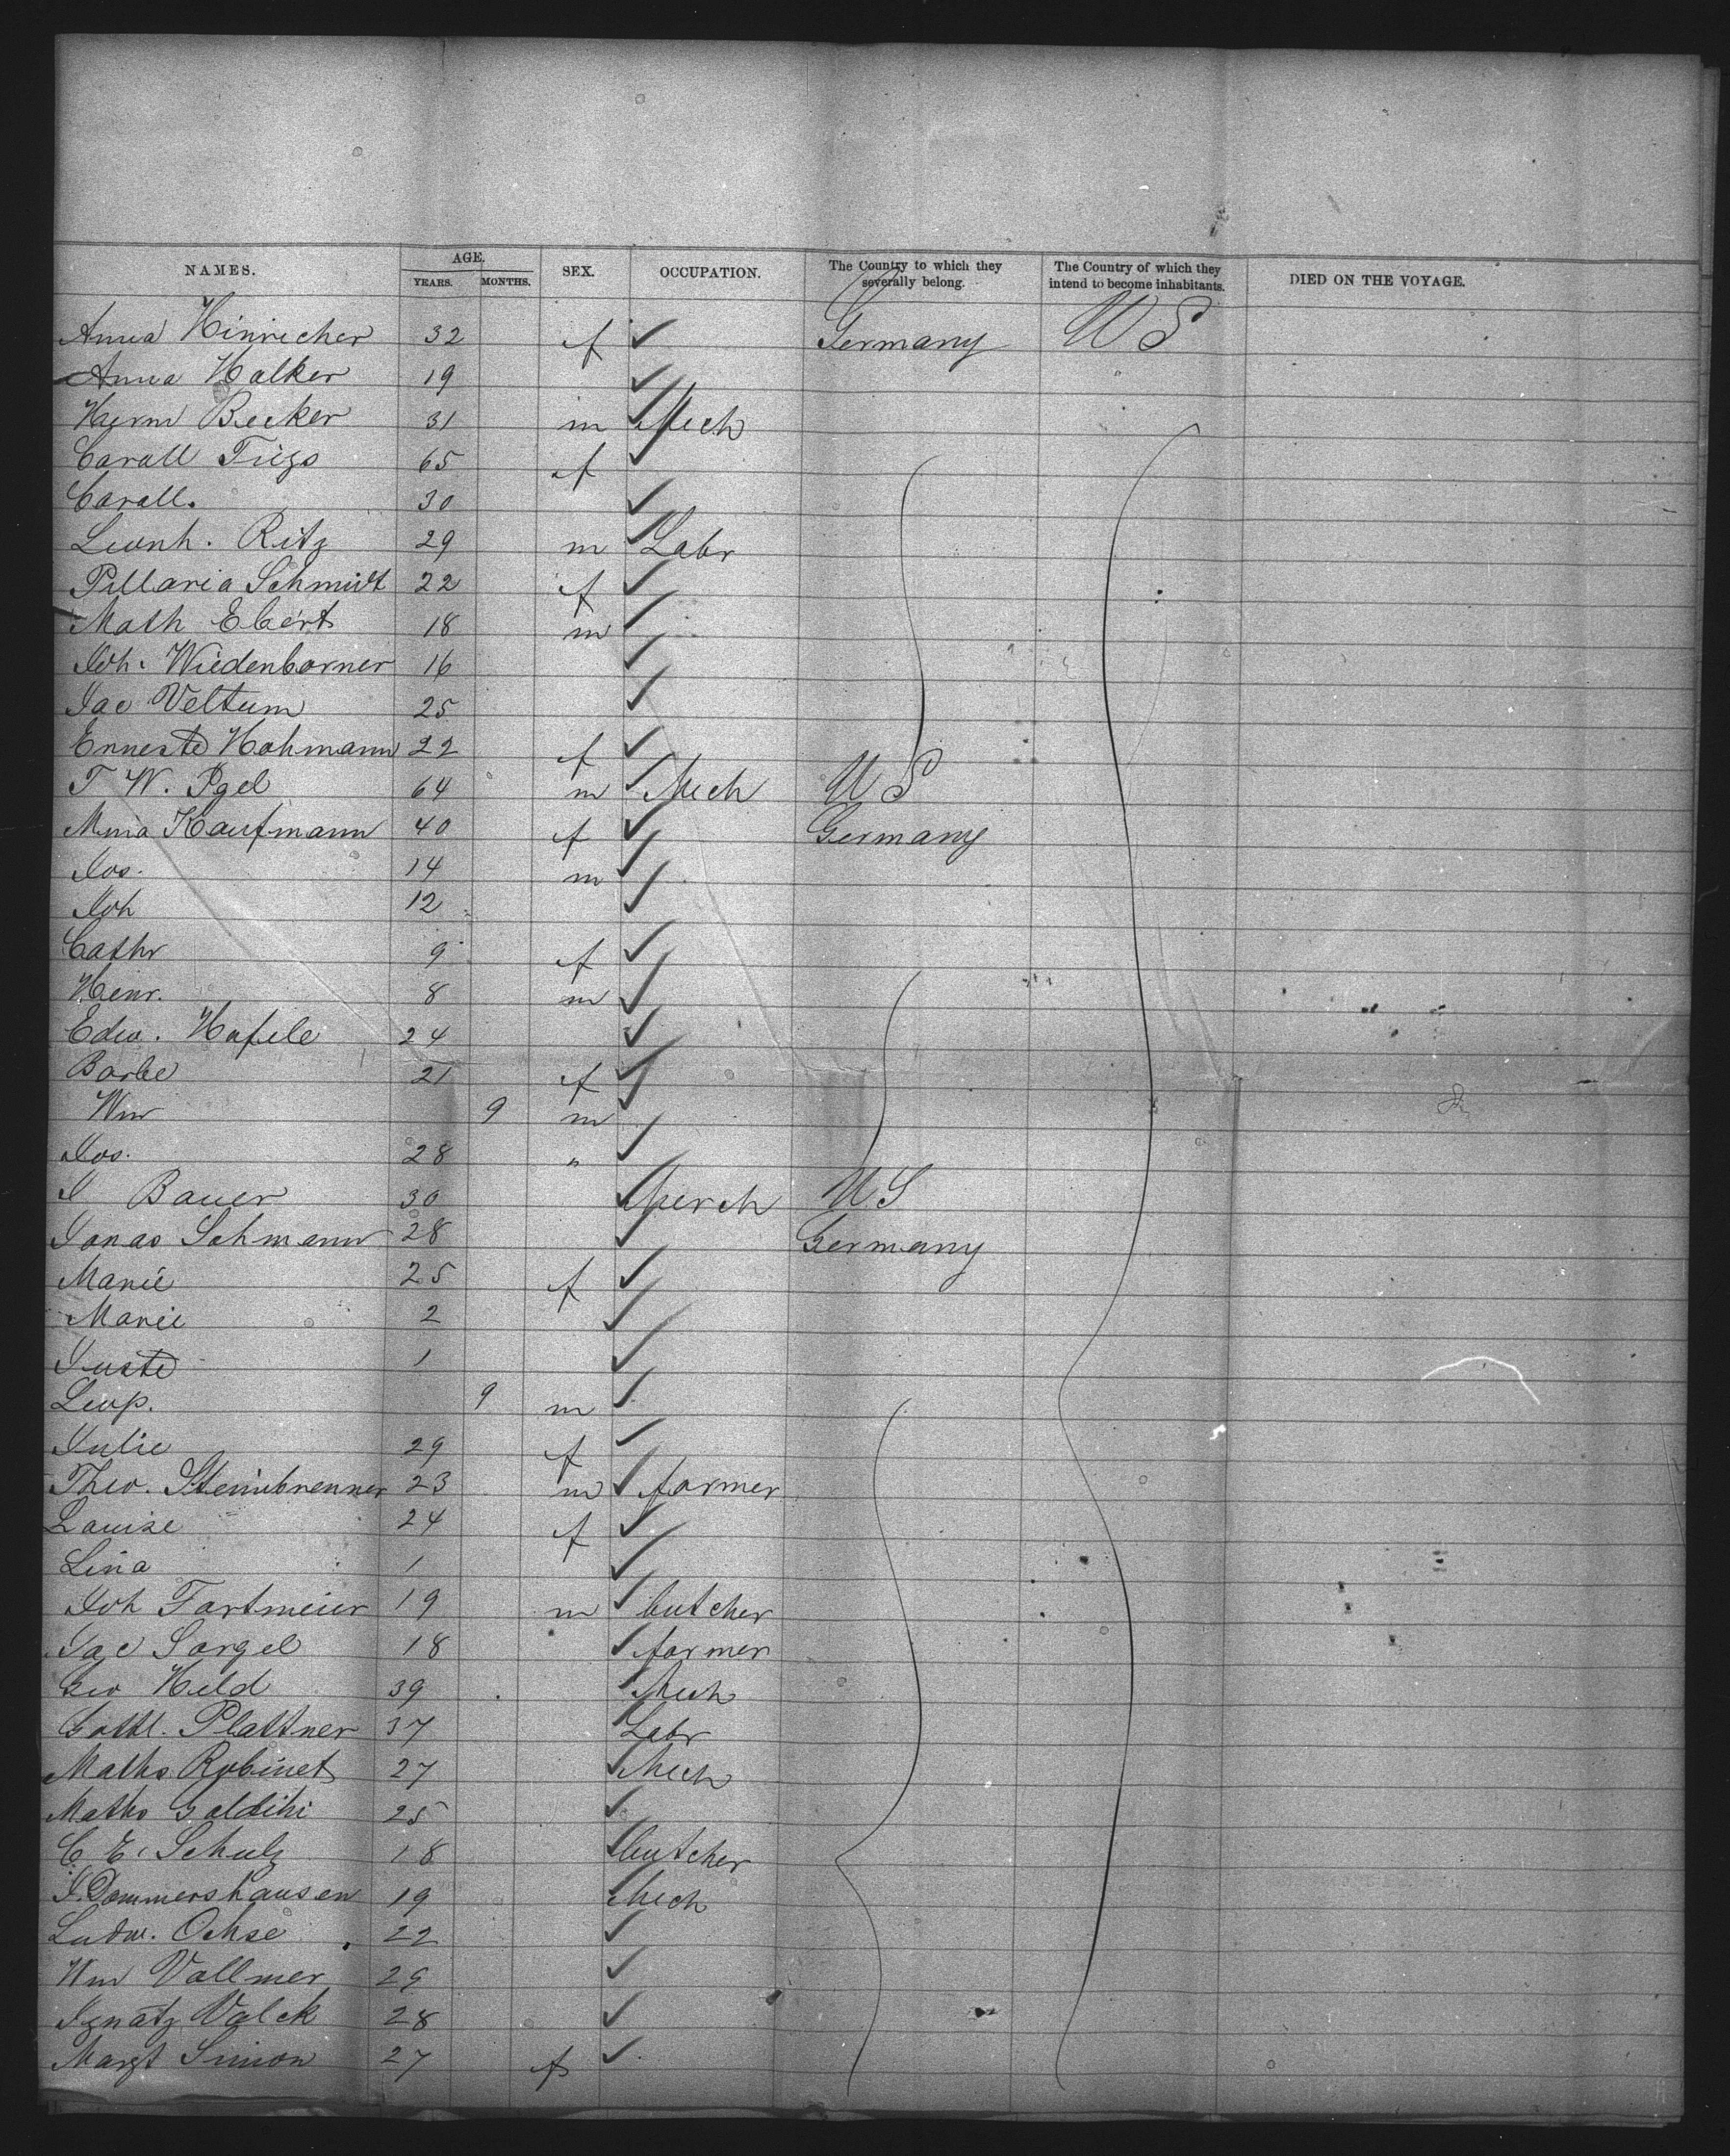 NAMES. AGE. YEARS. MONTHS. SEX. OCCUPATION. The Country to which they severally belong. The Country of which they intend to become inhabitants. DIED ON THE VOYAGE.
Anna Hinricher 32 f Germany US
Anna Holker 19
Herm Becker 31 m Mech
Caroll 65 f
Caroll. 30
Leonh. Ritz 29 m Labr
Schmidt 22 f
Math Ebert 18 m
Joh. Wiedenborner 16
Jac Veltum 25
Erneste Hohmann 22 f
T W. 64 m Mech US
Mina Kaufmann 40 f Germany
Jos. 14 m
Joh 12
Cathr 9 f
Heinr. 8 m
Edw. Hafele 24
Barbe 21 f
Wm 9 m
Jos. 28 "
J Bauer 30 Merch US
Jonas Sohmann 28 Germany
Marie 25 f
Marie 2
Juste 1
Leop. 9 m
Julie 29 f
Theo. Steinbrenner 23 m farmer
Louise 24 f
Lina 1
Joh Fortmeier 19 m butcher
Jac Sorgel 18 farmer
Geo Held 39 Mech
Gottl. Plattner 37 Labr
Maths Robinet 27 Mech
Maths 25
C. E. Schulz 18 butcher
J. Dommershausen 19 Mech
Ludw. Ochse 22
Wm Vollmer 29
Ignatz Valck 28
Margt Simon 27 f